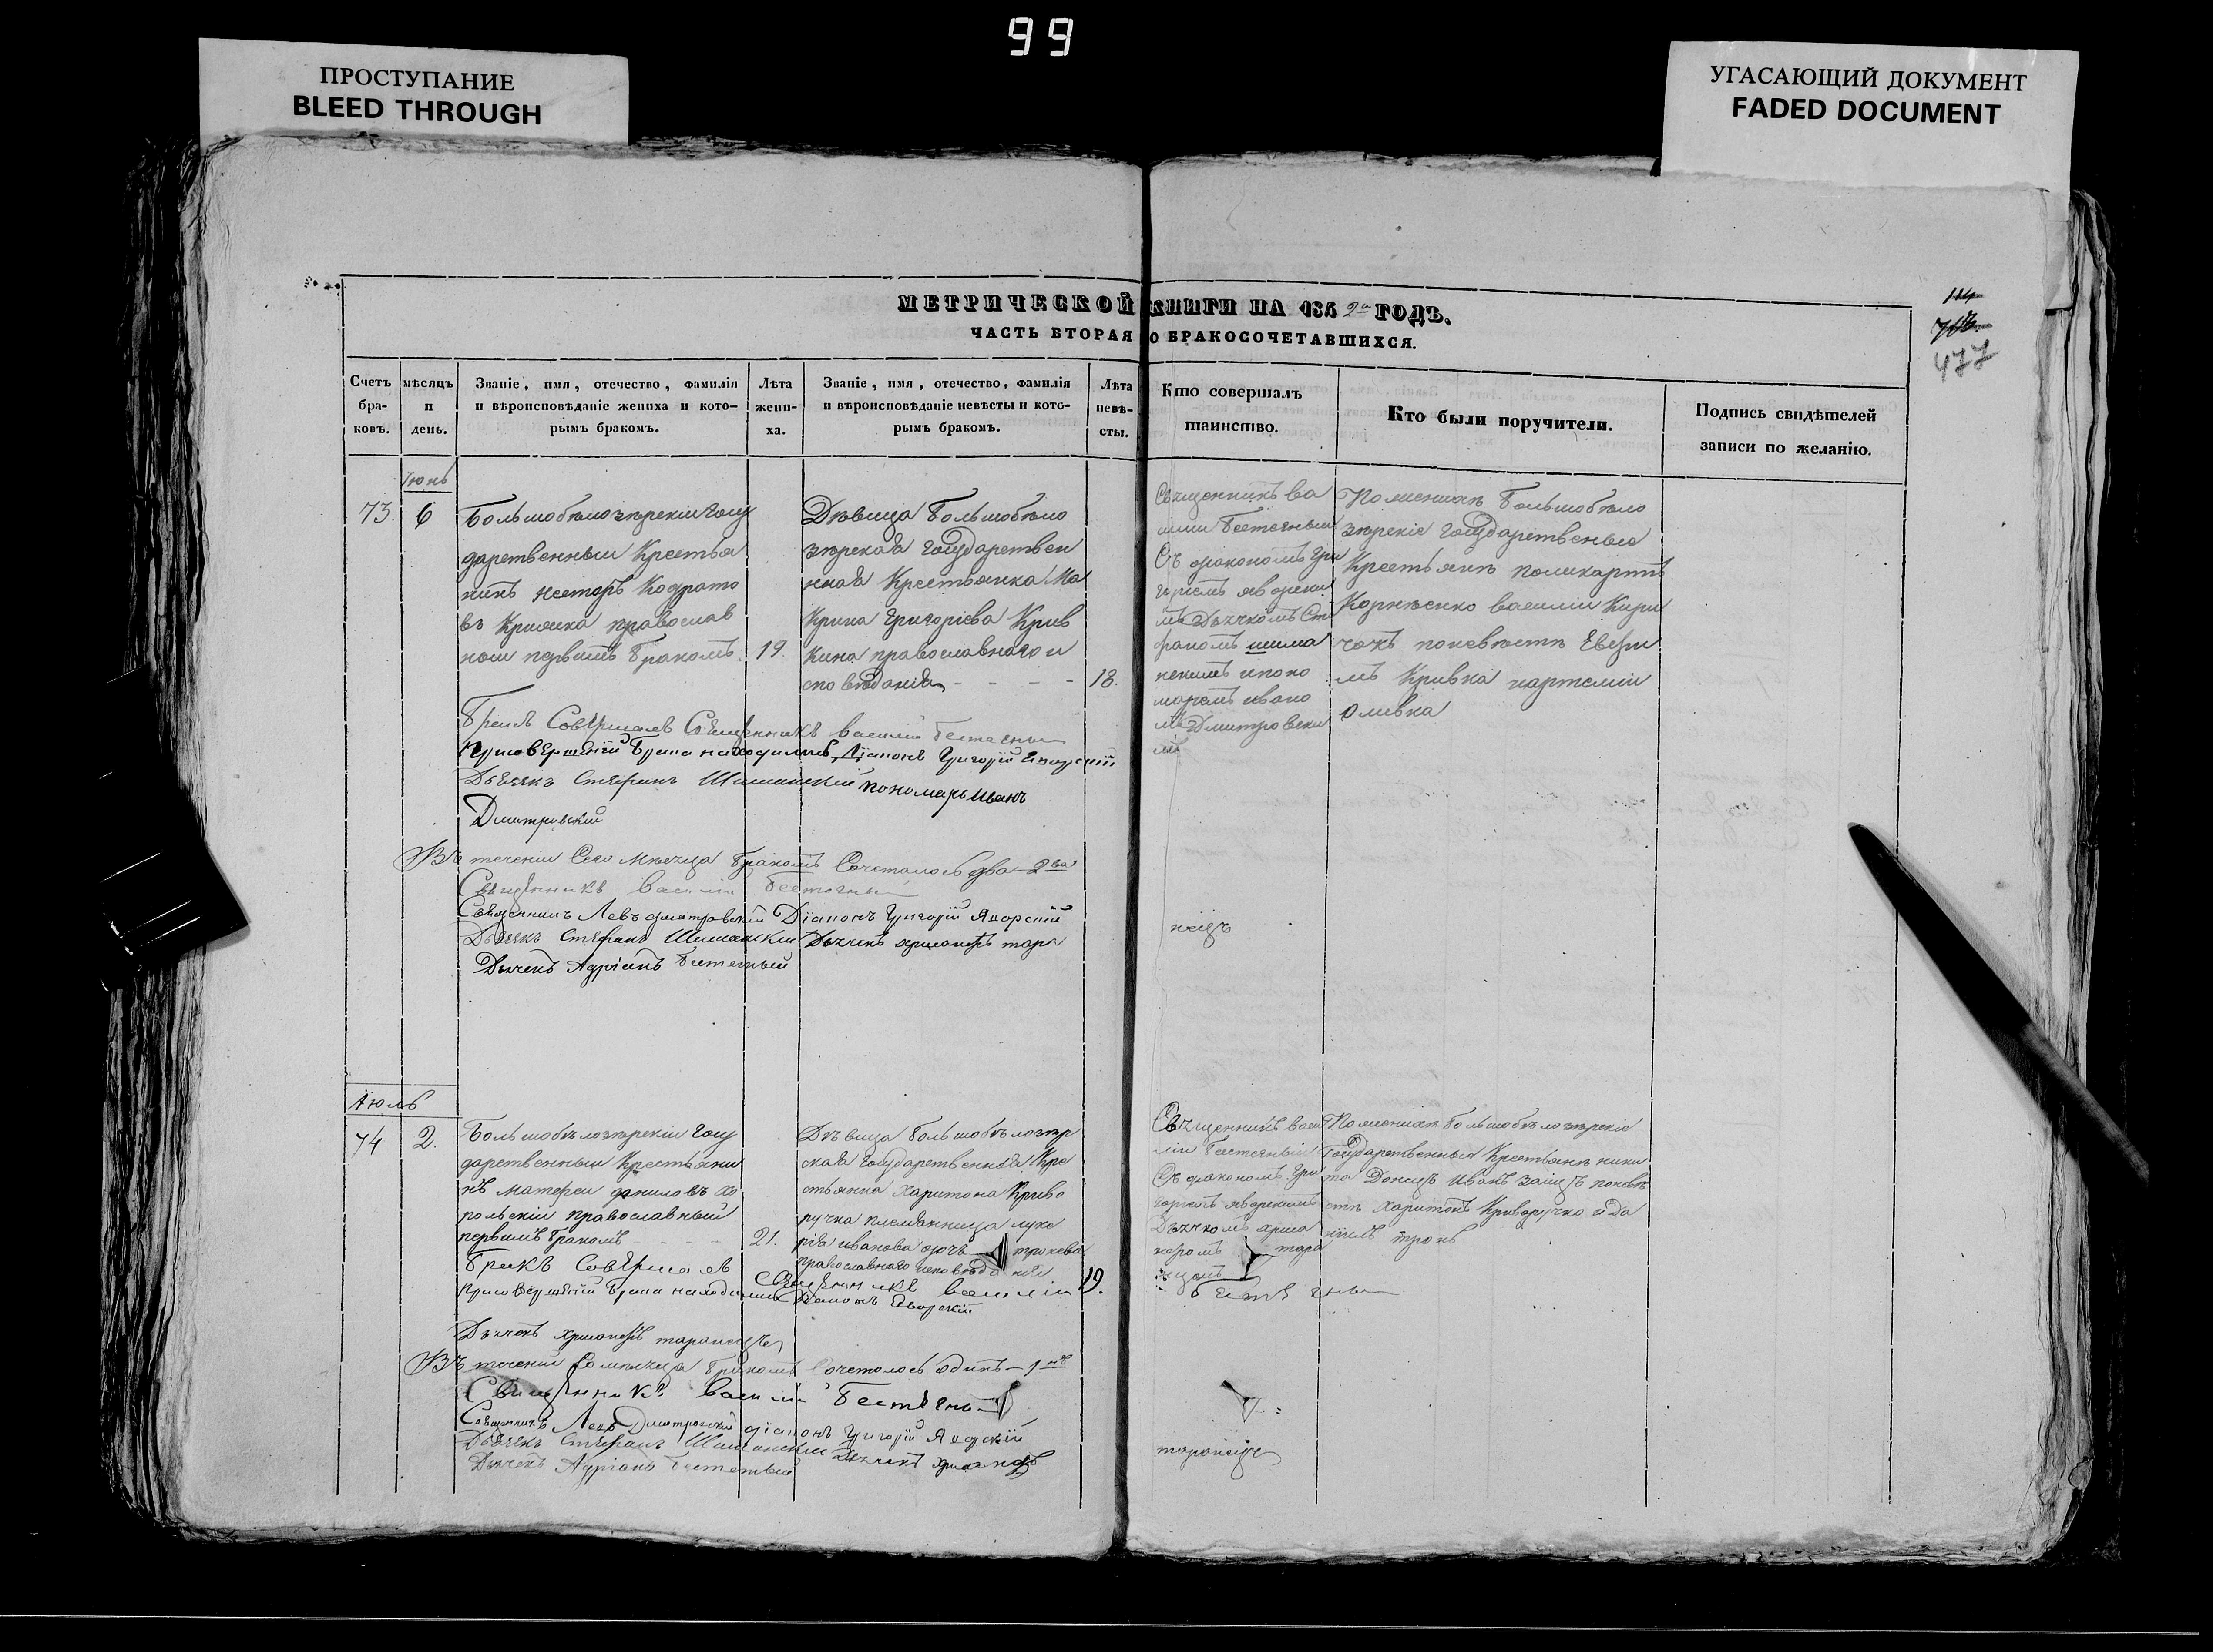 99
ПРОСТУПАНИЕ
BLEED THROUGH
УГАСАЮЩИЙ ДОКУМЕНТ
FADED DOCUMENT
МЕТРИЧЕСКОЙ КНИГИ НА 184 2й ГОДЪ.
ЧАСТЬ ВТОРАЯ О БРАКОСОЧЕТАВШИХСЯ.
477
Счетъ бра-ковъ.
мѣсяцъ и день.
Званіе, имя, отечество, фамилія
и вѣроисповѣданіе жениха и кото-
рымъ бракомъ.
Лѣта жени-ха.
Званіе, имя, отечество, фамилія
и вѣроисповѣданіе невѣсты и кото-
рымъ бракомъ.
Лѣта невѣ-сты.
Кто совершалъ
таинство.
Кто были поручители.
Подпись свидѣтелей
записи по желанію.
Июнь
73. 6
Большобѣлозѣрскіи госу
дарственныи Крестья
нинъ Несторъ Кодрато
въ православ
нои первымъ бракомъ. 19.
Дѣвица Большобѣло
зѣрская государствен
ная Крестьянка Ма
крина Григоріева Крив
кина православнаго и
сповѣданія - - - - 18.
Священникъ ва
силіи Бестечныи
Съ диакономъ Гри
горіемъ Яворски
мъ Дьячкомъ Сте
фаномъ шима
нскимъ и поно
маремъ ивано
мъ Дмитровски
мъ
По женихѣ Большобѣло
зѣрскіе государственые
Крестьяне поликарпъ
Корнѣенко василіи Кири
чокъ по невѣстѣ Евфи
мъ Кривка иартеміи
Оливка
Бракъ Совершалъ Священникъ василій Бестечны
При совершеніи брака находились Діаконъ Григорій Яворскій
Дьячекъ Стефанъ Шиманскій пономарь Иванъ
Дмитровскій
Въ теченіи Сего Мѣсяца бракомъ Сочеталось два — 2ва
Священникъ василіи Бестечный
Священникъ Левъ Дмитровскій Діаконъ Григорій Яворскій
Дьячекъ Стефанъ Шиманскій Дьячекъ тара
нецъ
Дьячекъ Адріанъ Бестечный
Июль
74 2.
Большобѣлозѣрскіи госу
дарственныи Крестьяни
нъ Матфеи даниловъ хо
рольскіи православный
первымъ бракомъ - - - - 21.
Дѣвица большобѣлозѣр
ская государственная Кре
стьянка Харитона Криво
ручка племянница луке
рія иванова дочь
православнаго исповѣданія 19.
Священникъ васи
ліи Бестечный
Съ диакономъ Гри
горіемъ яворскимъ
Дьячкомъ
тара
нцомъ
По женихѣ большобѣлозѣрскіе
государственныя Крестьяне ники
та Донецъ иванъ заецъ по невѣ
стѣ Харитонъ Криворучко и да
ніилъ
Бракъ Совершалъ Священникъ василіи Бестечны
При совершеніи брака находились Діаконъ Яворскій
Дьячекъ таранецъ
Въ теченіи Сего мѣсяца бракомъ Сочеталось одинъ — 1нъ
Священникъ Василій Бестечны
Священникъ Левъ Дмитровскій діаконъ Григорій Яворскій
Дьячекъ Стефанъ Шиманскій Дьячекъ
таранецъ
Дьячекъ Адріанъ Бестечный